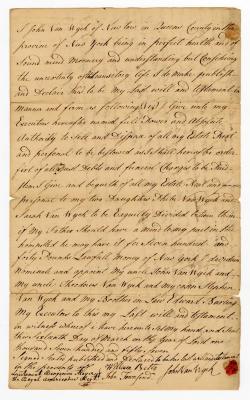 I John Van Wyck of New town in Queens County in the
province of New York being in perfect health and of
Sound mind Memory and understanding but Considering
the uncertainty of this transitory life do make publish
and Declare this to be my Last will and Testament in
Manner and form as following Viz I Give unto my
Executors hereafter named full Power and Absolute
Authority to Sell and Dispose of all my Estate Real
and personal to be bestowed as I shall hereby order
first of all Just Debts and funeral Charges to be paid
Item I Give and bequeath of all my Estate Real and
personal to my two Daughters Phebe Van Wyck and
Sarah Van Wyck to be Equally Divided between them
if my Father Should have a mind to my part in the
homestead he may have it for Seven hundred and
forty Pounds Lawfull Money of New York I do order
Nominate and appoint my uncle John Van Wyck and
my uncle Theodorus Van Wyck and my Cousin Stephen
Van Wyck and my Brother in Law Edward
My Executors to this my Last will and Testament
in witness whereof I have hereunto Set my hand and Seal
this Sixteenth Day of March in the year of our Lord one
thousand Seven hundred and fifty Seven
Signed Sealed published and Declared to be his last will and testament
in the presence of William Betts
John Van Wyck